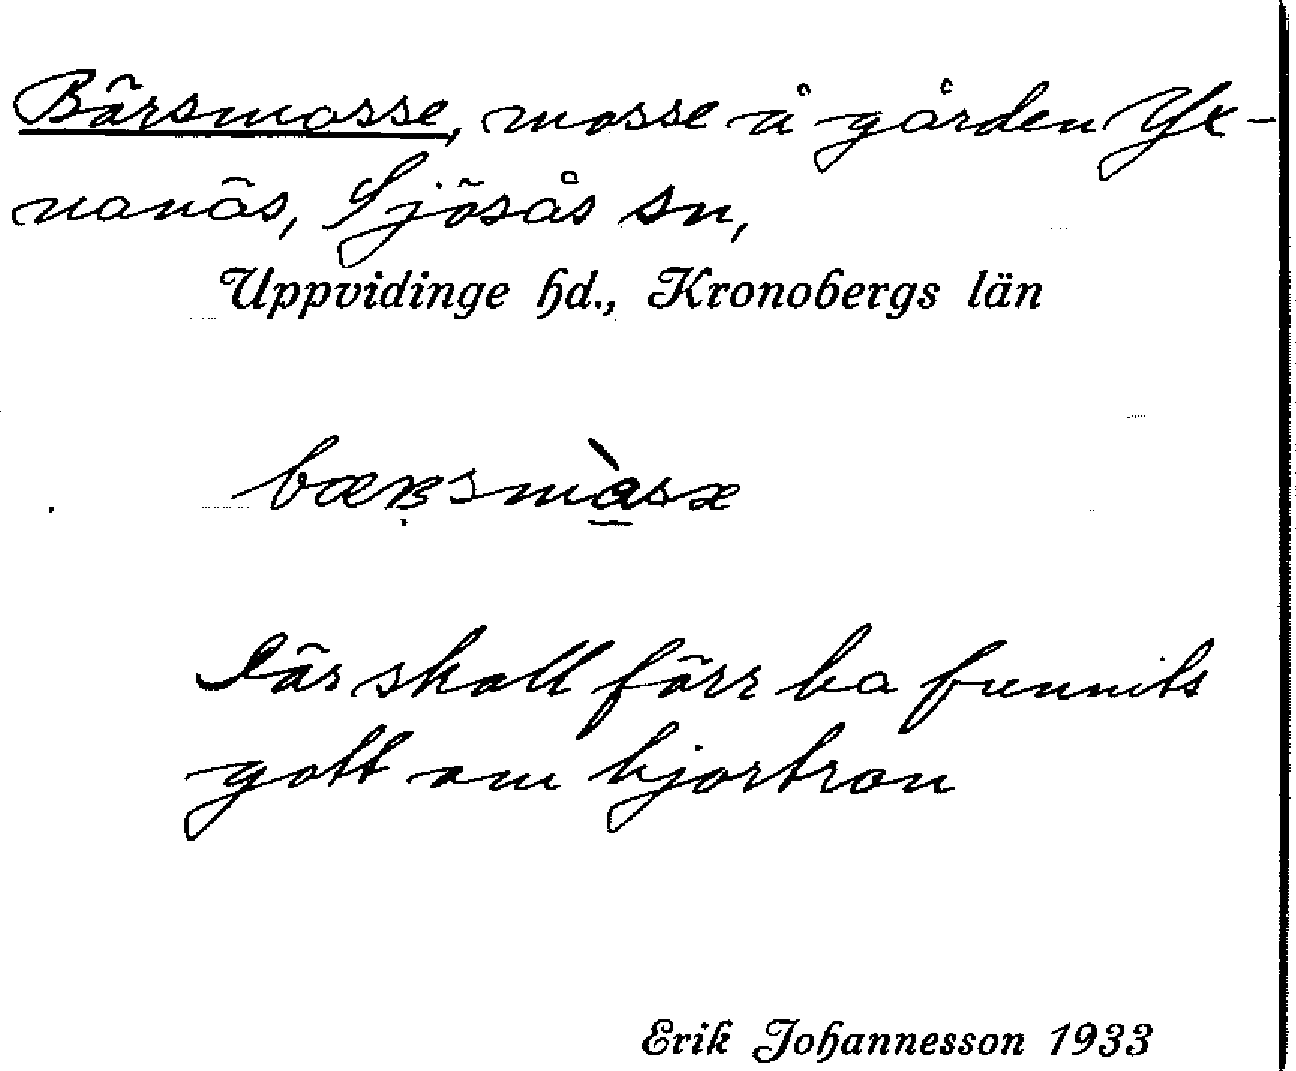 Bärsmosse, mosse å gården Yx-
nanäs, Sjösås sn,
Uppvidinge hd., Kronobergs län
Där skall förr ha funnits
gott om hjortron
Erik Johannesson 1933